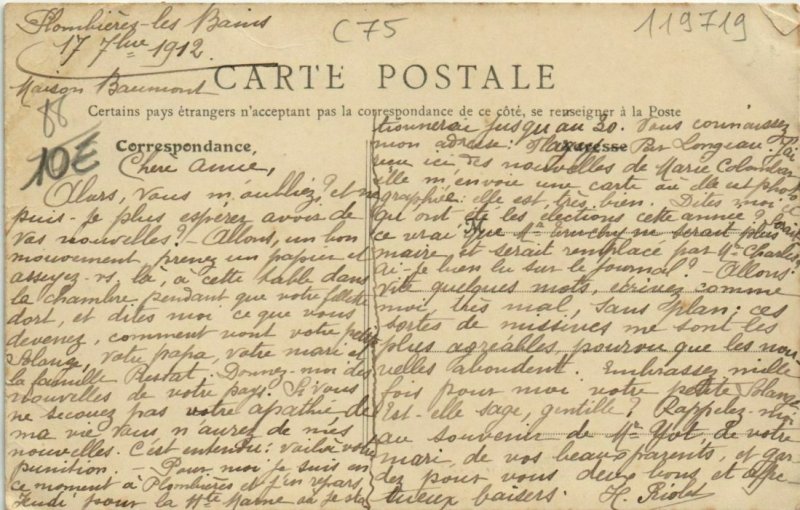 Plombières-les Bains
17 7bre 1912
Maison Baumont
C75
119719
88
10E
CARTE POSTALE
Certains pays étrangers n'acceptant pas la correspondance de ce côté, se renseigner à la Poste
Correspondance
Adresse
Chère amie,
Alors, vous m'oubliez? et ne
puis-je plus espérer avoir de
vos nouvelles? - Allons, un bon
mouvement, prenez un papier et
asseyez-vs, là, à cette table dans
la chambre pendant que votre fillette
dort, et dites moi ce que vous
devenez, comment vont votre petite
Blanche, votre papa, votre mari et
la famille Restat. Donnez-moi des
nouvelles de votre pays. Si vous
ne secouez pas votre apathie de
ma vie vous n'aurez de mes
nouvelles. C'est entendu: voilà votre
punition. - Pour moi je suis en
ce moment à Plombières et j'en repars
Jeudi pour la Hte Marne où je sta
tionnerai jusqu'au 30. Vous connaissez
mon adresse: Par Longeau. J'ai
reçu ici des nouvelles de Marie
elle m'envoie une carte où elle est photo
graphiée: elle est très bien. Dites moi
qu'ont été les élections cette année? Serait
ce vrai que Mr ne serait plus
maire et serait remplacé par Mr Charles
ai-je bien lu sur le journal? - Allons
vite quelques mots, écrivez comme
moi très mal, sans plan; ces
sortes de missives me sont les
plus agréables, pourvu que les nou
velles abondent. Embrassez mille
fois pour moi votre petite Blanche
Est-elle sage, gentille? Rappelez-moi
au souvenir de Mr de votre
mari, de vos beaux parents, et gar
dez pour vous deux bons et affec
tueux baisers. H.